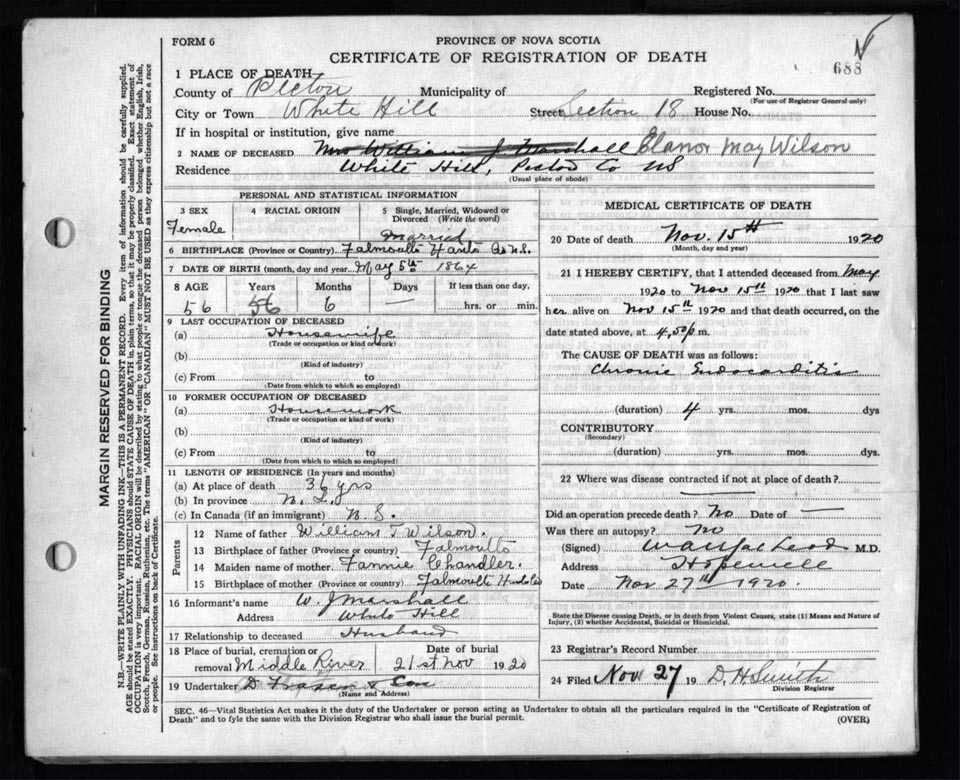 FORM 6
PROVINCE OF NOVA SCOTIA
CERTIFICATE OF REGISTRATION OF DEATH
688
1 PLACE OF DEATH
County of Pictou Municipality of Registered No.
(For use of Registrar General only)
City or Town White Hill Street Section 18 House No.
If in hospital or institution, give name
2 NAME OF DECEASED Mrs William J Marshall Elanor May Wilson
Residence White Hill, Pictou Co NS
(Usual place of abode)
PERSONAL AND STATISTICAL INFORMATION
3 SEX 4 RACIAL ORIGIN 5 Single, Married, Widowed or Divorced (Write the word)
Female Married
6 BIRTHPLACE (Province or Country) Falmouth Hants Co N.S.
7 DATE OF BIRTH (month, day and year) May 5th 1864
8 AGE Years Months Days If less than one day,
56 56 6 — hrs. or min.
9 LAST OCCUPATION OF DECEASED
(a) Housewife
(Trade or occupation or kind of work)
(b)
(Kind of industry)
(c) From to
(Date from which to which so employed)
10 FORMER OCCUPATION OF DECEASED
(a) Housework
(Trade or occupation or kind of work)
(b)
(Kind of industry)
(c) From to
(Date from which to which so employed)
11 LENGTH OF RESIDENCE (In years and months)
(a) At place of death 36 yrs
(b) In province N.S.
(c) In Canada (if an immigrant) N.S.
Parents
12 Name of father William T Wilson.
13 Birthplace of father (Province or country) Falmouth
14 Maiden name of mother Fannie Chandler.
15 Birthplace of mother (Province or country) Falmouth Hants Co
16 Informant's name W. J Marshall
Address White Hill
17 Relationship to deceased Husband
18 Place of burial, cremation or removal Middle River Date of burial 21st Nov 1920
19 Undertaker D Fraser & Con
(Name and Address)
MEDICAL CERTIFICATE OF DEATH
20 Date of death Nov. 15th 1920
(Month, day and year)
21 I HEREBY CERTIFY, that I attended deceased from May
1920 to Nov 15th 1920 that I last saw
her alive on Nov 15th 1920 and that death occurred, on the
date stated above, at 4,50 p m.
The CAUSE OF DEATH was as follows:
Chronic Endocarditis
(duration) 4 yrs. mos. dys
CONTRIBUTORY
(Secondary)
(duration) yrs. mos. dys.
22 Where was disease contracted if not at place of death?
Did an operation precede death? No Date of —
Was there an autopsy? No
(Signed) M.D.
Address Hopewell
Date Nov. 27th 1920.
State the Disease causing Death, or in death from Violent Causes, state (1) Means and Nature of
Injury, (2) whether Accidental, Suicidal or Homicidal.
23 Registrar's Record Number
24 Filed Nov 27 19 D, H Smith
Division Registrar
SEC. 46—Vital Statistics Act makes it the duty of the Undertaker or person acting as Undertaker to obtain all the particulars required in the "Certificate of Registration of
Death" and to fyle the same with the Division Registrar who shall issue the burial permit.
(OVER)
MARGIN RESERVED FOR BINDING
N.B.—WRITE PLAINLY WITH UNFADING INK—THIS IS A PERMANENT RECORD. Every item of information should be carefully supplied.
AGE should be stated EXACTLY. PHYSICIANS should STATE CAUSE OF DEATH in plain terms, so that it may be properly classified. Exact statement of
OCCUPATION is very important. RACIAL ORIGIN will be described by stating to what people or tongue the deceased person belonged whether English, Irish,
Scotch, French, German, Russian, Ruthenian, etc. The terms "AMERICAN" OR "CANADIAN" MUST NOT BE USED as they express citizenship but not a race
or people. See instructions on back of Certificate.